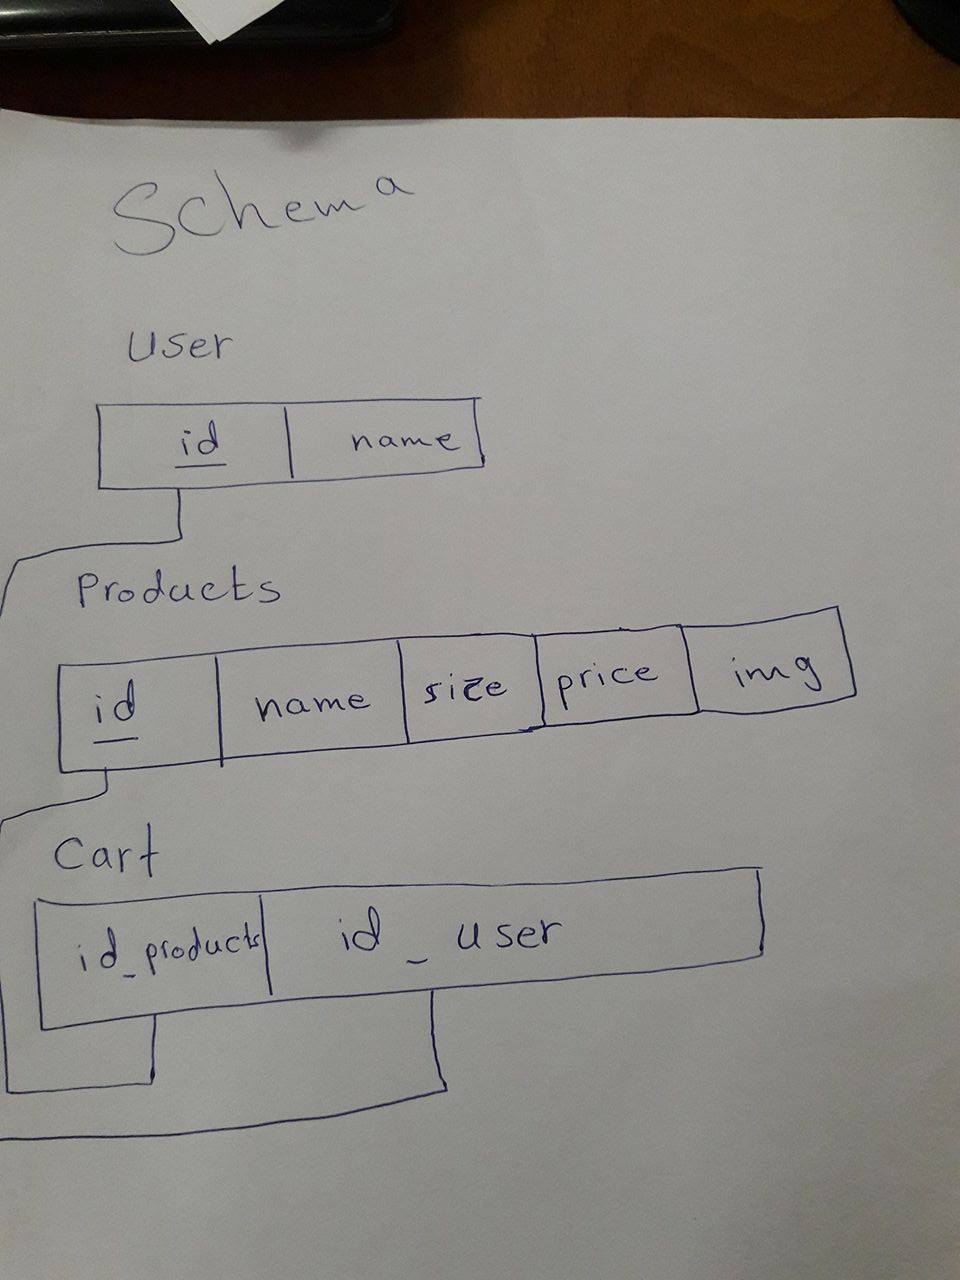 Schema
User
id name
Products
id name size price img
Cart
id_products id_user